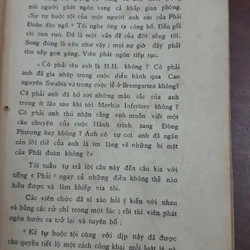 nói người phát ngôn vang cả khắp gian phòng.
«Sự tự buộc tội của một người anh em của Phái
Đoàn đào ngũ » Tôi nghe ông ta công bố. Đầu gối
tôi run run. Đó là một vấn đề của đời sống tôi.
Song đúng là nên như vậy ; mọi sự giờ đây phải
thu xếp gọn gàng. Viên phát ngôn tiếp tục.
« Có phải tên anh là H.H. không ? Có phải
anh đã gia nhập trong cuộc diễn hành qua Cao
nguyên Swabia và trong cuộc lễ ở Bremgarten không ?
Có phải anh đã bỏ rơi những màu sắc của anh
trong ít lâu sau khi tới Morbio Inferiore không ? Có
phải anh thú nhận rằng anh muốn viết một câu
chuyện của cuộc Hành trình sang Đông
Phương hay không ? Anh có tự coi anh đã ngăn
cản lời thề của anh là im lặng về những bí mật
của Phái đoàn không?»
Tôi tuần tự trả lời câu này đến câu kia với
tiếng « Phải » ngay cả những điều không thể nào
hiểu được và làm khiếp vía tôi.
Các viên chức đã xì xào hỏi ý kiến với nhau
và bằng các cử chỉ trong một lúc ; rồi thì viên phát
ngôn bước ra trở lại và tuyên bố :
« Kẻ tự buộc tội cùng với dịp này đã được
cho quyền tiết lộ một cách công khai mỗi luật lệ và